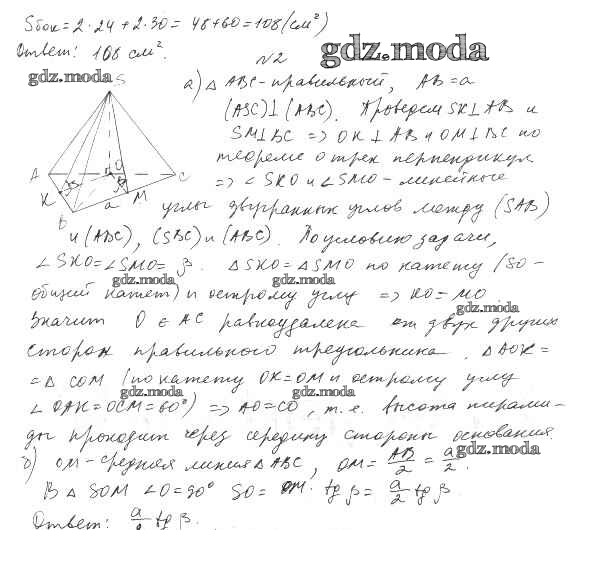 Sбок = 2·24 + 2·30 = 48+60 = 108 (см²)
Ответ: 108 см².
gdz.moda
N2
gdz.moda
S
A
O
C
K
β
β
a
M
B
а) △ ABC - правильный, AB = a
(ASC) ⊥ (ABC). Проведем SK ⊥ AB и
SM ⊥ BC => OK ⊥ AB и OM ⊥ BC по
теореме о трех перпендикул
=> ∠ SKO и ∠ SMO - линейные
углы двугранных углов между (SAB)
и (ABC), (SBC) и (ABC). По условию задачи,
∠ SKO = ∠ SMO = β. △ SKO = △ SMO по катету (SO -
gdz.moda
gdz.moda
общий катет) и острому углу => KO = MO
gdz.moda
Значит O ∈ AC равноудалена от двух других
сторон правильного треугольника. △ AOK =
= △ COM (по катету OK = OM и острому углу
gdz.moda
gdz.moda
∠ OAK = OCM = 60°) => AO = CO, т.е. высота пирами-
ды проходит через середину стороны основания.
gdz.moda
б) OM - средняя линия △ ABC, OM = AB/2 = a/2.
В △ SOM ∠O = 90° SO = OM · tg β = a/2 tg β.
Ответ: a/2 tg β.